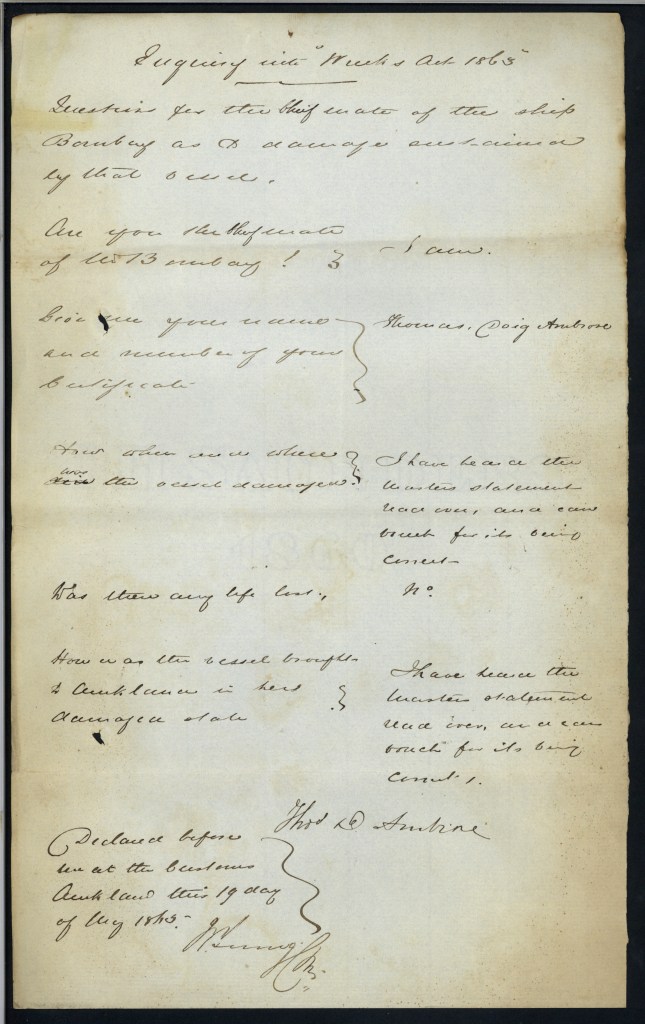 Enquiry into Wrecks Act 1863
Questions for the Chief mate of the ship
Bombay as to damage sustained
by that vessel.
Are you the Chief mate
of the Bombay?
- I am.
Give me your name
and number of your
Certificate
Thomas. Ambrose
How when and where
was the vessel damaged.
I have heard the
Masters statement
read over, and can
vouch for its being
correct
Was there any life lost.,
No
How was the vessel brought
to Auckland in her
damaged state
I have heard the
Masters statement
read over, and can
vouch for its being
correct.
Thos D Ambrose
Declared before
me at the Customs
Auckland this 19 day
of May